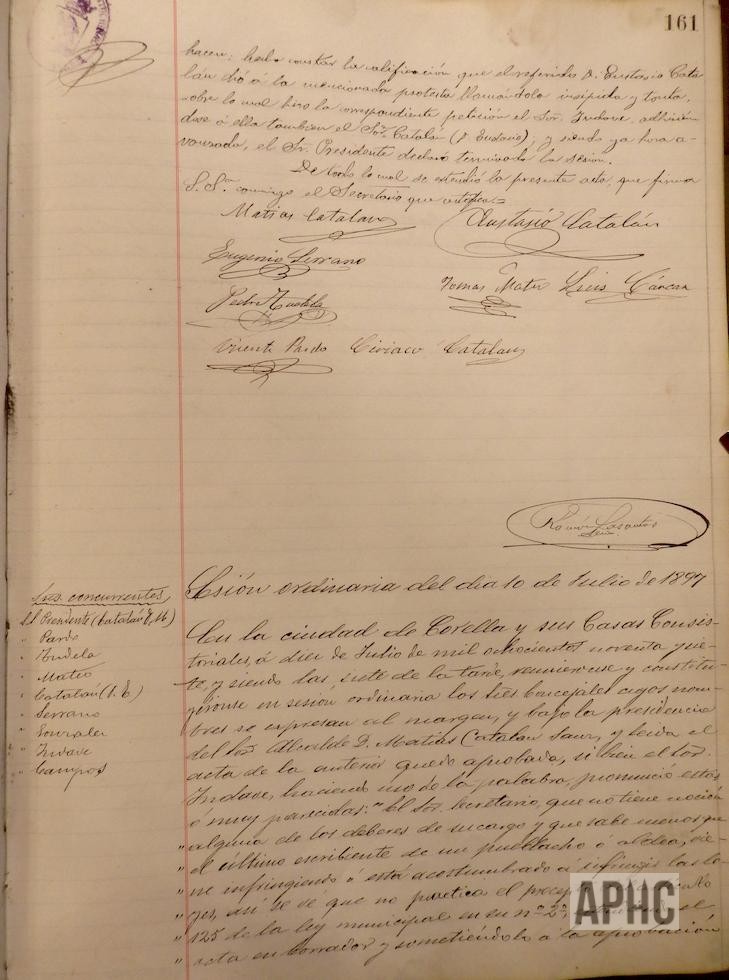 161
hacen; hecho constar la calificación que el referido D. Eustasio Cata
lán dió á la mencionada protesta llamándola insípida y tonta,
sobre lo cual hizo la correspondiente petición el Sor. Indave, adhirién
dose á ella tambien el Sor. Catalán (D. Eustasio); y siendo ya hora a-
vanzada, el Sr. Presidente declaró terminada la sesion.
De todo lo cual se extendió la presente acta, que firma
S. Sª conmigo el Secretario que certifico.=
Matias Catalan
Eustasio Catalán
Eugenio Serrano
Tomas Mateo Luis
Pedro Tudela
Vicente Pardo Ciriaco Catalan
Ramón Lasantas
Srio.
Sesión ordinaria del dia 10 de Julio de 1897
Sres. concurrentes
El Presidente (Catalán D. M)
" Pardo
" Tudela
" Mateo
" Catalán (D. E)
" Serrano
" Gonzalez
" Indave
" Campos
En la ciudad de Corella y sus Casas Consis-
toriales, á diez de Julio de mil ochocientos noventa y sie-
te, y siendo las siete de la tarde, reunieronse y constitu-
yéronse en sesión ordinaria los Sres Concejales cuyos nom-
bres se expresan al margen, y bajo la presidencia
del Sor. Alcalde D. Matías Catalán Sanz, y leida el
acta de la anterior quedó aprobada, si bien el Sor.
Indave, haciendo uso de la palabra, pronunció estas
ó muy parecidas: "El Sor. Secretario, que no tiene noción
" alguna de los deberes de su cargo y que sabe menos que
" el último escribiente de un pueblacho ó aldea, vie-
" ne infringiendo ó está acostumbrado á infringir las le-
" yes, así se vé que no practica el
" 125 de la ley municipal en su nº 2º, el
" acta en borrador y sometiéndolo á la aprobación
APHC